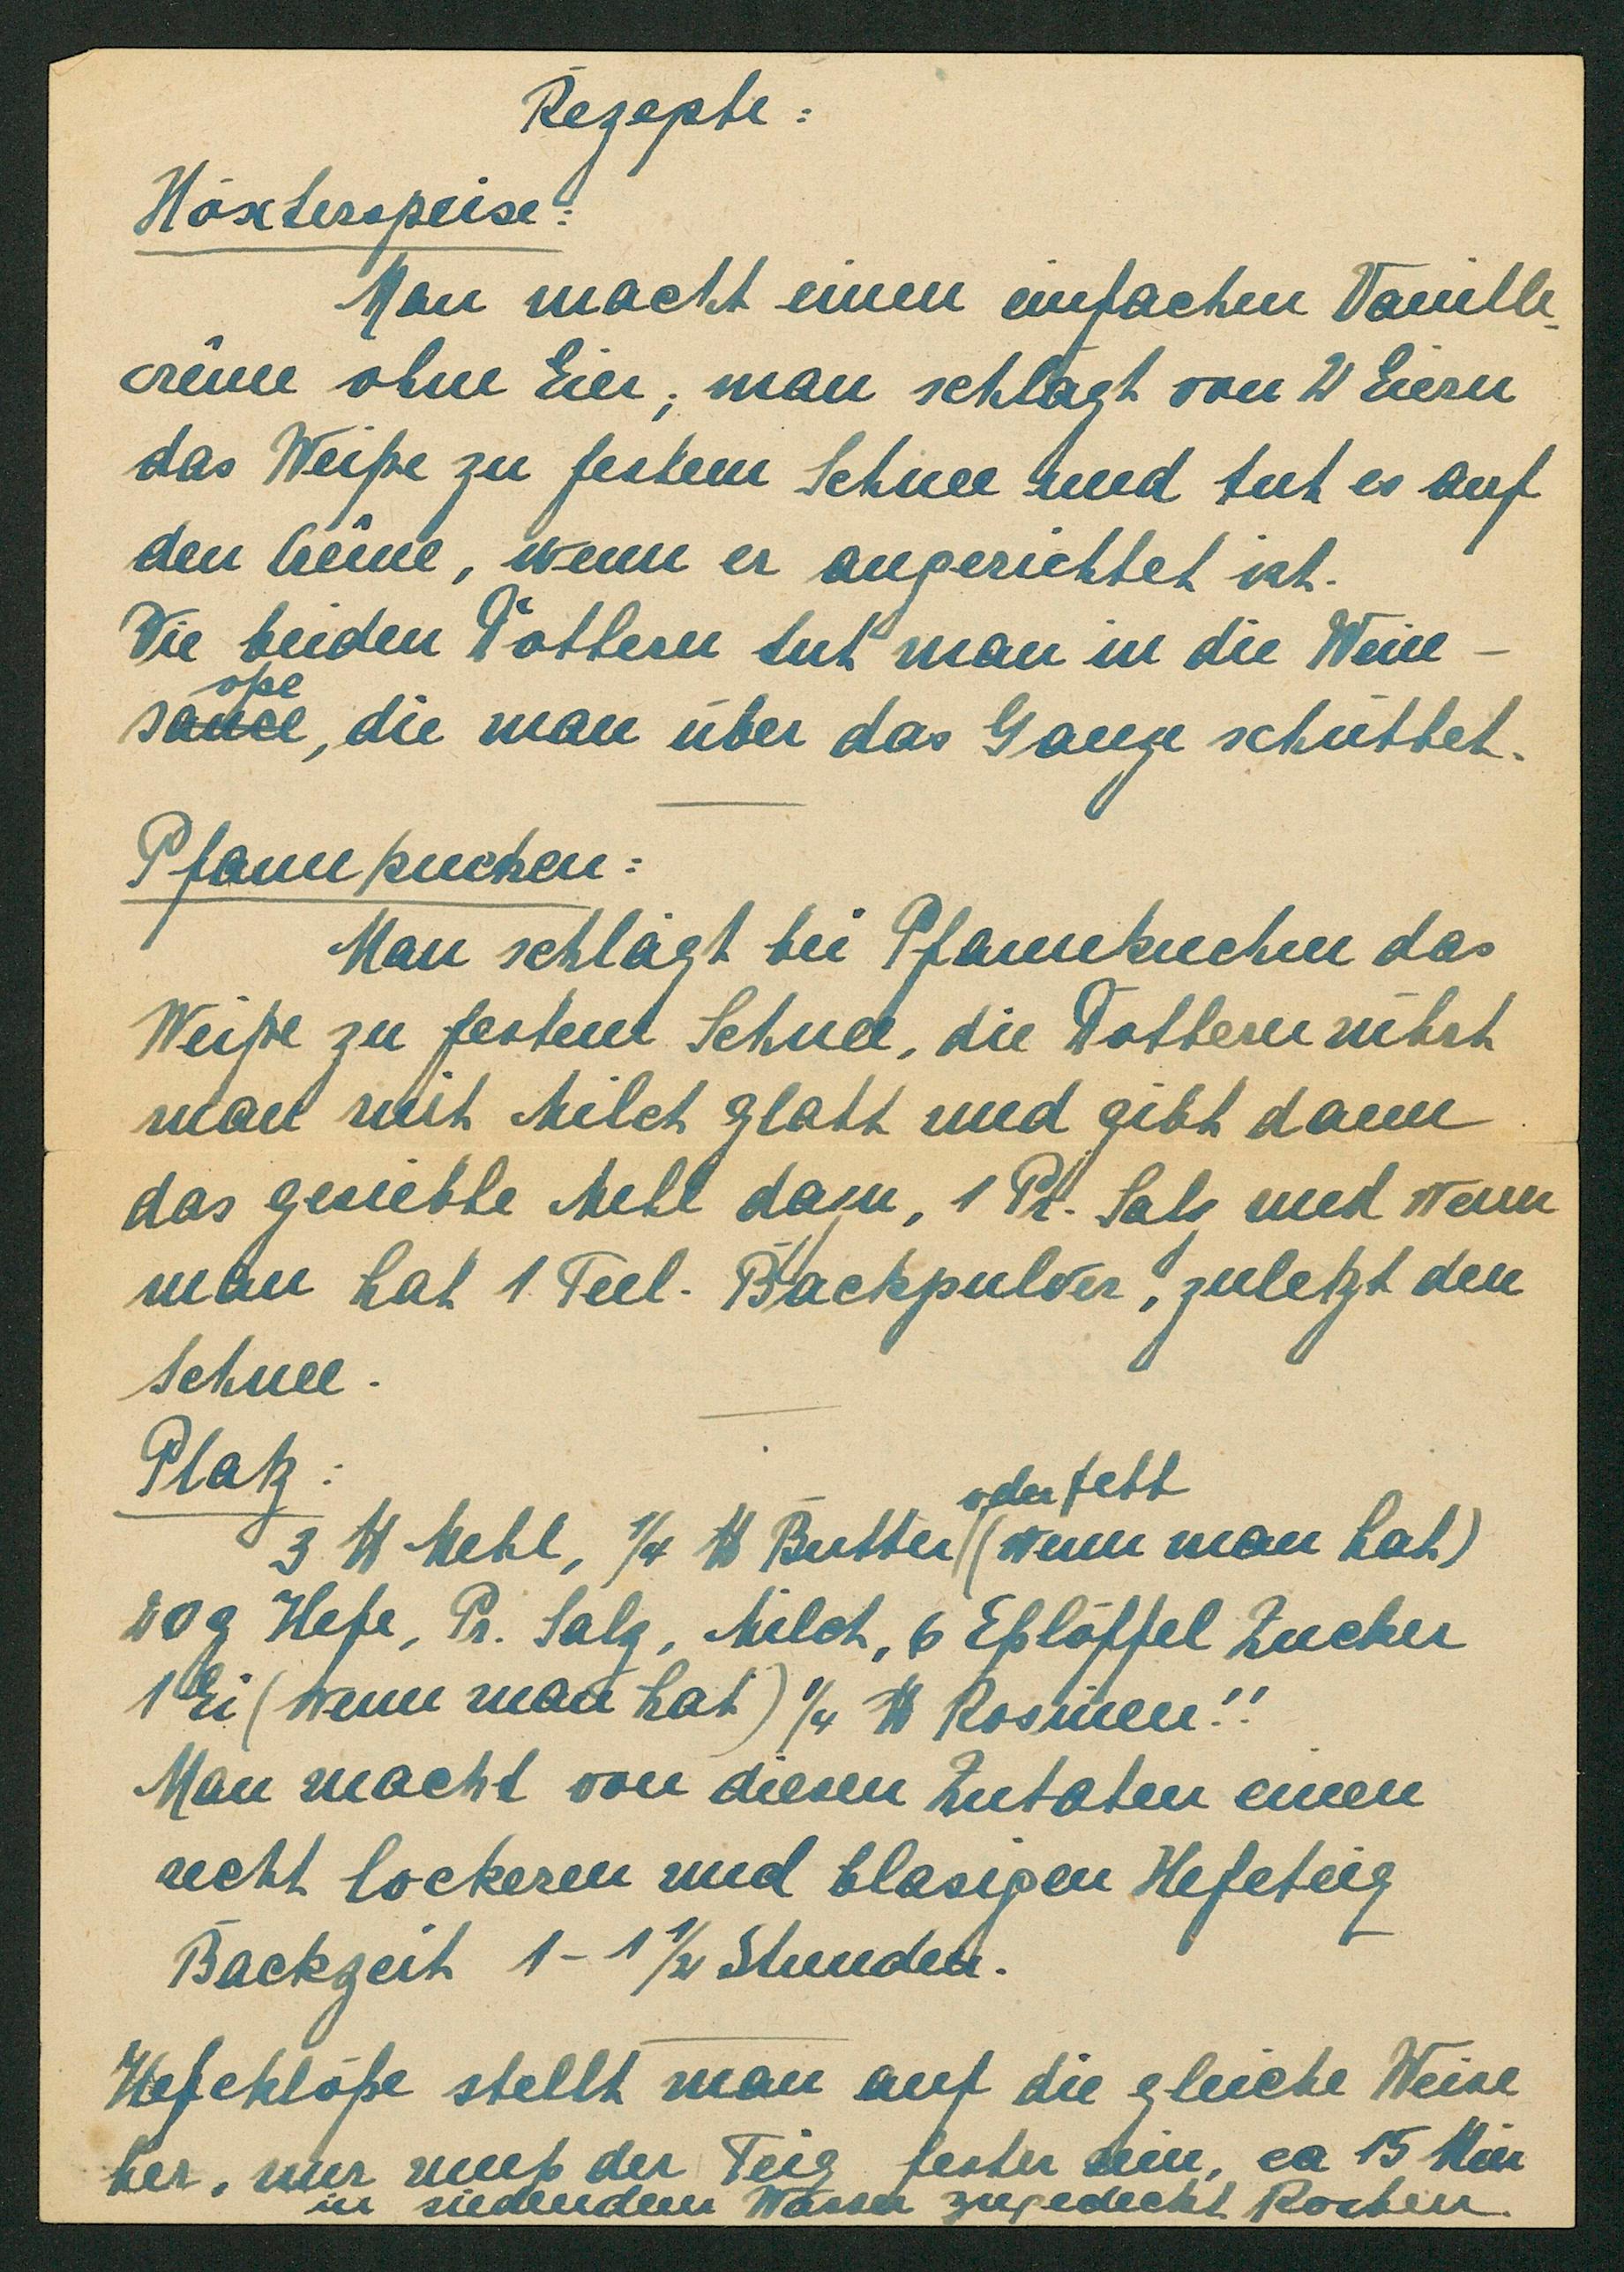 Rezepte:
Höxterspeise:
Man macht einen einfachen Vanille-
crême ohne Eier, man schlägt von 2 Eiern
das Weiße zu festem Schnee und tut es auf
den Crême, wenn er angerichtet ist.
Die beiden Dottern tut man in die Wein-
oße
sauce, die man über das Ganze schüttet.
Pfannkuchen:
Man schlägt bei Pfannekuchen das
Weiße zu festem Schnee, die Dottern rührt
man mit Milch glatt und gibt dann
das gesiebte Mehl dazu, 1 Pr. Salz und wenn
man hat 1 Teel. Backpulver, zuletzt den
Schnee.
Platz:
oder Fett
3 ℔ Mehl, 1/4 ℔ Butter (wenn man hat)
g Hefe, Pr. Salz, Milch, 6 Eßlöffel Zucker
1 Ei (wenn man hat) 1/4 ℔ Rosinen!!
Man macht von diesen Zutaten einen
recht lockeren und blasigen Hefeteig
Backzeit 1-1 1/2 Stunden.
Hefeklöße stellt man auf die gleiche Weise
her, nur muß der Teig fester sein, ca 15 Min
in siedendem Wasser zugedeckt kochen.